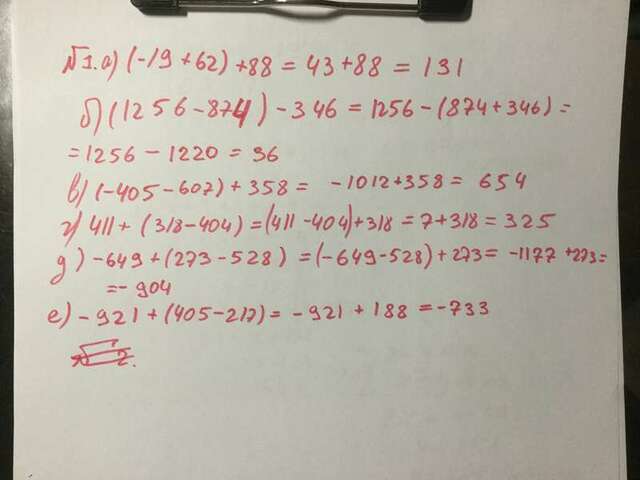 №1. а) (-19+62)+88 = 43+88 = 131
б) (1256-874)-346 = 1256-(874+346) =
= 1256 - 1220 = 36
в) (-405-607)+358 = -1012+358 = 654
г) 411+(318-404) = (411-404)+318 = 7+318 = 325
д) -649+(273-528) = (-649-528)+273 = -1177+273 =
= -904
е) -921+(405-217) = -921+188 = -733